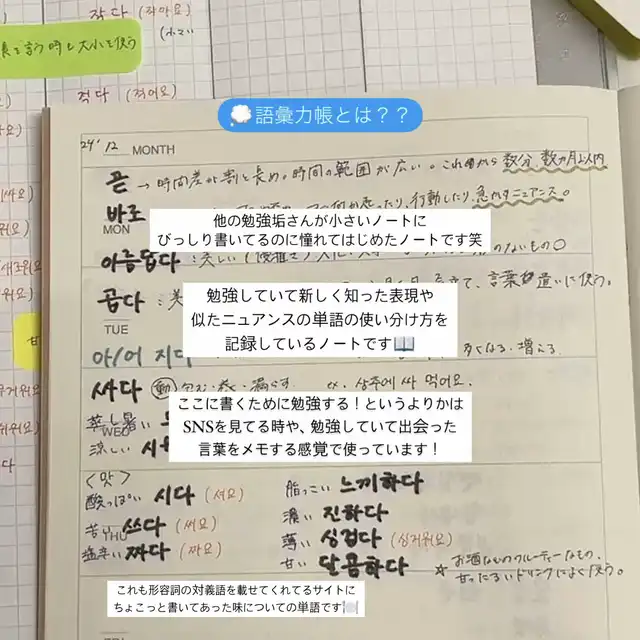 작다 (작아요)
を言う時も大小を使う
적다 (적어요)
語彙力帳とは？？
24' 12 MONTH
곧 → 時間差が割と長め。時間の範囲が広い。これから数分、数カ月以内
바로
行動したり、急かすニュアンス。
MON
他の勉強垢さんが小さいノートに
びっしり書いてるのに憧れてはじめたノートです笑
아름답다 : 美しい
のないもの○
곱다 : 美
言葉遣いに使う。
勉強していて新しく知った表現や
似たニュアンスの単語の使い分け方を
記録しているノートです📖
TUE
아/어 지다
増える
싸다 動 包む・巻く・漏らす ex. 상추에 싸 먹어요.
ここに書くために勉強する！というよりかは
SNSを見てる時や、勉強していて出会った
言葉をメモする感覚で使っています！
蒸し暑い
WED
涼しい
<味>
酸っぱい 시다 (셔요)
脂っこい 느끼하다
濃い 진하다
苦い 쓰다 (써요)
THU
薄い 싱겁다 (싱거워요)
塩辛い 짜다 (짜요)
甘い 달콤하다
☆ お酒なのフルーティーなもの、
甘ったるいドリンクによく使う。
これも形容詞の対義語を載せてくれてるサイトに
ちょこっと書いてあった味についての単語です🍽️